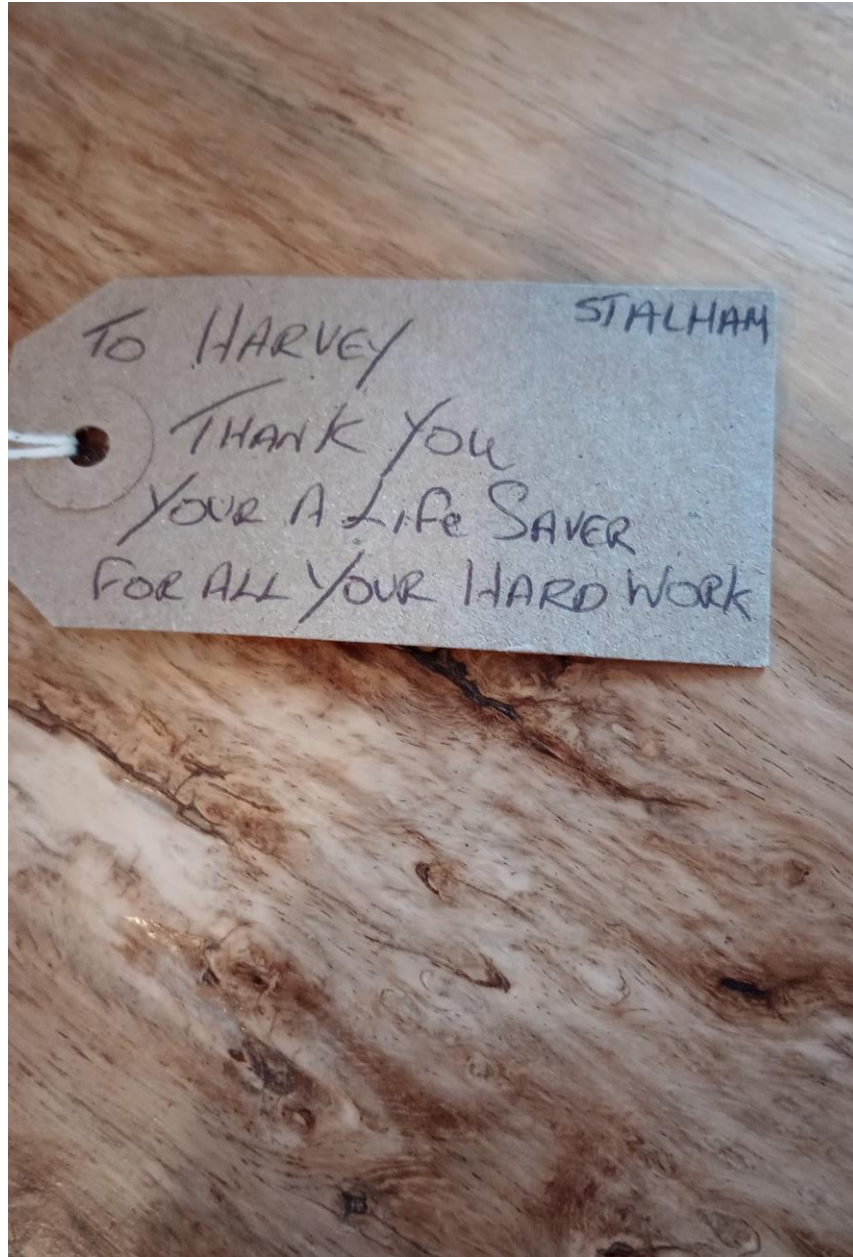 STALHAM
To HARVEY
THANK YOU
YOUR A LiFe SAVER
FOR ALL YOUR HARD WORK